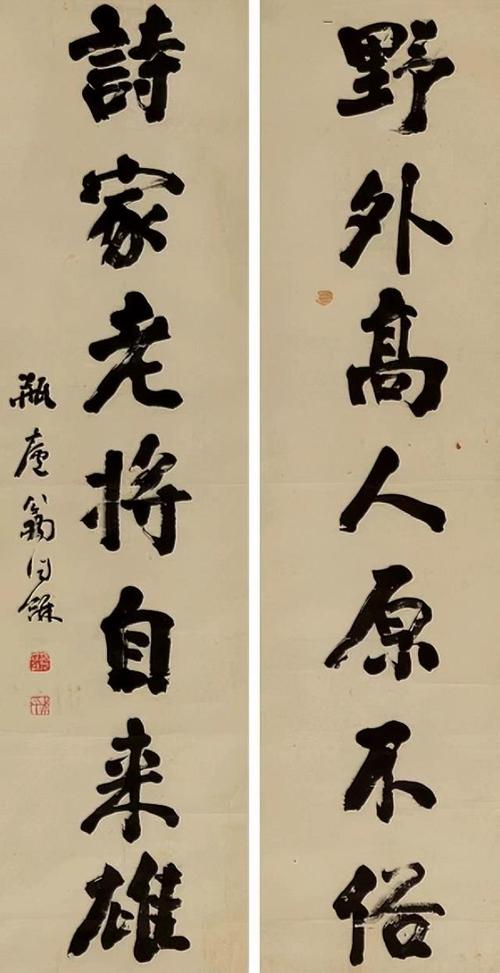 野外高人原不俗
詩家老将自来雄
瓶廬翁同龢